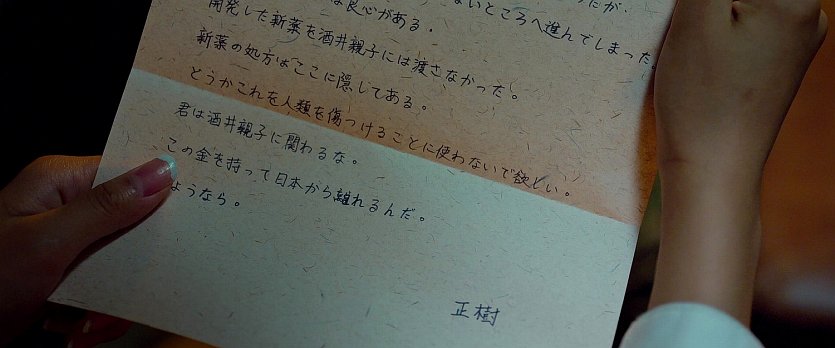 ないところへ進んでしまった
は良心がある.
開発した新薬を酒井親子には渡さなかった。
新薬の処方はここに隠してある。
どうかこれを人類を傷つけることに使わないで欲しい。
君は酒井親子に関わるな。
この金を持って日本から離れるんだ。
ようなら。
正樹